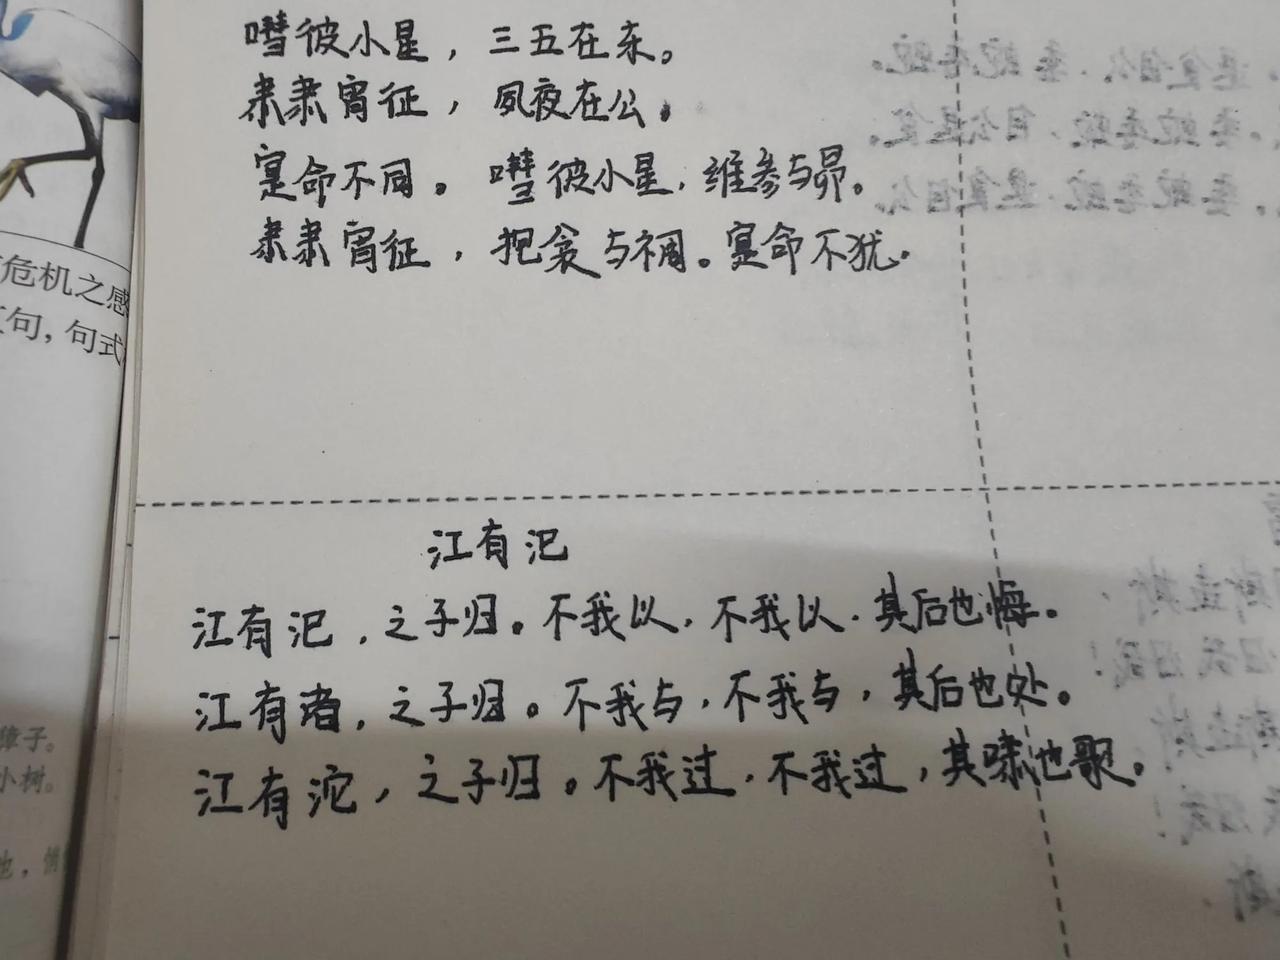 嘒彼小星，三五在东。
肃肃宵征，夙夜在公。
寔命不同。嘒彼小星，维参与昴。
肃肃宵征，抱衾与裯。寔命不犹。
江有汜
江有汜，之子归。不我以，不我以，其后也悔。
江有渚，之子归。不我与，不我与，其后也处。
江有沱，之子归。不我过，不我过，其啸也歌。
危机之感
句，句式
障子。
小树。
也，